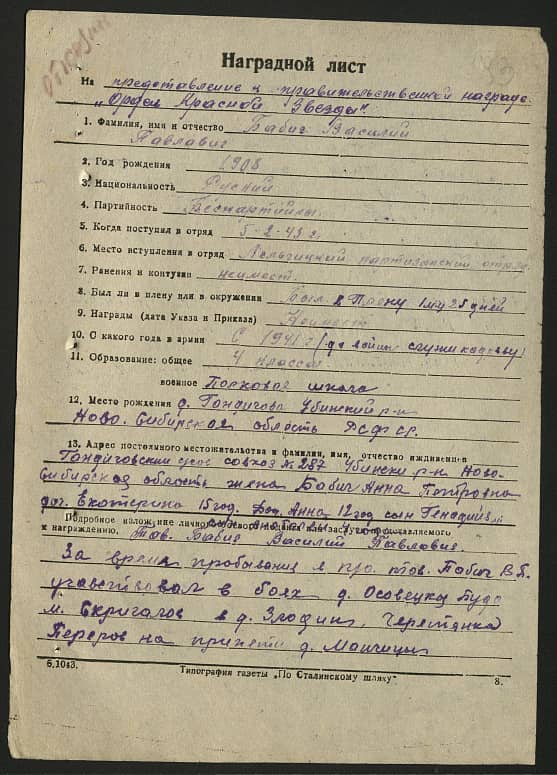 Наградной лист
На представление к правительственной награде
„Орден Красной Звезды"
1. Фамилия, имя и отчество Бабич Василий
Павлавич
2. Год рождения 1908
3. Национальность Руский
4. Партийность Беспартийны.
5. Когда поступил в отряд 5-2-43 г.
6. Место вступления в отряд Лельчицкий партизанский отряд
7. Ранения и контузии неимеет.
8. Был ли в плену или в окружении был в плену 1 мц 25 дней
9. Награды (дата Указа и Приказа) Неимеет
10. С какого года в армии С 1941 г (до войны служил кадровую)
11. Образование: общее 4 класса
военное Полковая школа
12. Место рождения д. Гандичова Убинский р-н
Ново. Сибирская область РСФСР.
13. Адрес постоянного местожительства и фамилия, имя, отчество иждивенцев
совхоз № 287 Убински р-н Ново-
Сибирская область жена Бабич Анна Петровна
доч. Екатерина 15 год. Анна 12 год сын Генадий
Подробное изложение личного
к награждению, Тов. Бабич Василий Павлавич.
За время пробывания в п/о тов. Бабич В.П.
учавствовал в боях д. Осовецка Буда
м. Скригалов в д. Злодин, Черетянка
Переров на припети д. Мончицы
6.1043.
Типография газеты „По Сталинскому шляху"
8.